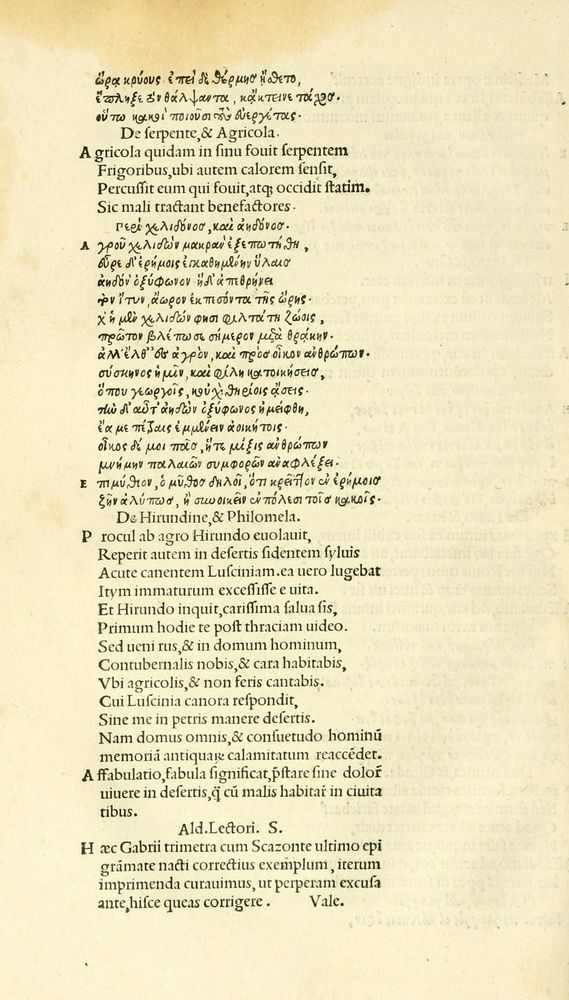 ὥρα κρύους· ἐπεὶ δὲ θέρμης ᾔσθετο,
ἔπληξε τὸν θάλψαντα, κἄκτεινε τάχος.
οὕτω κακοὶ ποιοῦσι τοὺς εὐεργέτας.
De serpente, & Agricola.
A gricola quidam in sinu fouit serpentem
Frigoribus, ubi autem calorem sensit,
Percussit eum qui fouit, atq; occidit statim.
Sic mali tractant benefactores.
Περὶ χελιδόνος, καὶ ἀηδόνος.
Α γροῦ χελιδὼν μακρὰν ἐξεπωτήθη,
εὗρε δ' ἐρήμοις ἐγκαθημένην ὕλαις
ἀηδόν' ὀξύφωνον· ἡ δ' ἀπεθρήνει
τὸν ἴτυν, ἄωρον ἐκπεσόντα τῆς ὥρης.
χ' ἡ μὲν χελιδών φησι φιλτάτη ζώοις,
πρῶτον βλέπω σε σήμερον μετὰ θράκην.
ἀλλ' ἔλθ' ἐς ἀγρὸν, καὶ πρὸς οἶκον ἀνθρώπων.
σύσκηνος ἡμῖν, καὶ φίλη κατοικήσεις,
ὅπου γεωργοῖς, κοὐχὶ θηρίοις ᾄσεις.
τὴν δ' αὖτ' ἀηδὼν ὀξύφωνος ἠμείφθη,
ἔα με πέτραις ἐμμένειν ἀοικήτοις.
οἶκος δέ μοι πᾶς, ἥτε μίξις ἀνθρώπων
μνήμην παλαιῶν συμφορῶν ἀναφλέξει.
Ε πιμύθιον, ὁ μῦθος δηλοῖ, ὅτι κρεῖττον ἐν ἐρήμοις
ζῆν ἀλύπως, ἢ συνοικεῖν ἐν πόλεσι τοῖς κακοῖς.
De Hirundine, & Philomela.
P rocul ab agro Hirundo euolauit,
Reperit autem in desertis sidentem syluis
Acute canentem Lusciniam. ea uero lugebat
Itym immaturum excessisse e uita.
Et Hirundo inquit, carissima salua sis,
Primum hodie te post thraciam uideo.
Sed ueni rus, & in domum hominum,
Contubernalis nobis, & cara habitabis,
Vbi agricolis, & non feris cantabis.
Cui Luscinia canora respondit,
Sine me in petris manere desertis.
Nam domus omnis, & consuetudo hominū
memoriā antiquaꝝ calamitatum reaccēdet.
A ffabulatio, fabula significat, p̄stare sine dolor̄
uiuere in desertis, q̄ cū malis habitar̄ in ciuita
tibus.
Ald. Lectori. S.
H æc Gabrii trimetra cum Scazonte ultimo epi
grāmate nacti correctius exemplum, iterum
imprimenda curauimus, ut perperam excusa
ante, hisce queas corrigere. Vale.